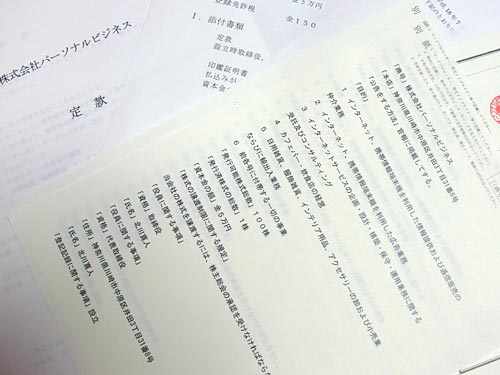 株式会社パーソナルビジネス
定款
登録免許税
金150
1．添付書類
定款
設立時取締役，
印鑑証明書
払込みが
資本金の
別紙
「商号」株式会社パーソナルビジネス
「本店」神奈川県川崎市中原区井田3丁目31番8号
「公告をする方法」官報に掲載してする。
「目的」
1 インターネット、携帯情報端末機を利用した情報提供および通信販売の
仲介業務
2 インターネット、携帯情報端末機を利用した広告業務
3 インターネットサービスの企画、設計・構築・保守・運用業務に関する
受託及びコンサルティング
4 カフェバー・飲食店の経営
5 日用雑貨、服飾雑貨、インテリア用品、アクセサリーの卸および小売業
ならびに輸出入業務
6 前各号に付帯する一切の事業
「発行可能株式総数」100株
「発行済株式の総数」1株
「資本金の額」金5万円
「株式の譲渡制限に関する規定」
当会社の株式を譲渡するには、株主総会の承認を受けなければならな
「役員に関する事項」
「資格」取締役
「氏名」北川貴人
「役員に関する事項」
「資格」代表取締役
「住所」神奈川県川崎市中原区井田3丁目31番8号
「氏名」北川貴人
「登記記録に関する事項」設立